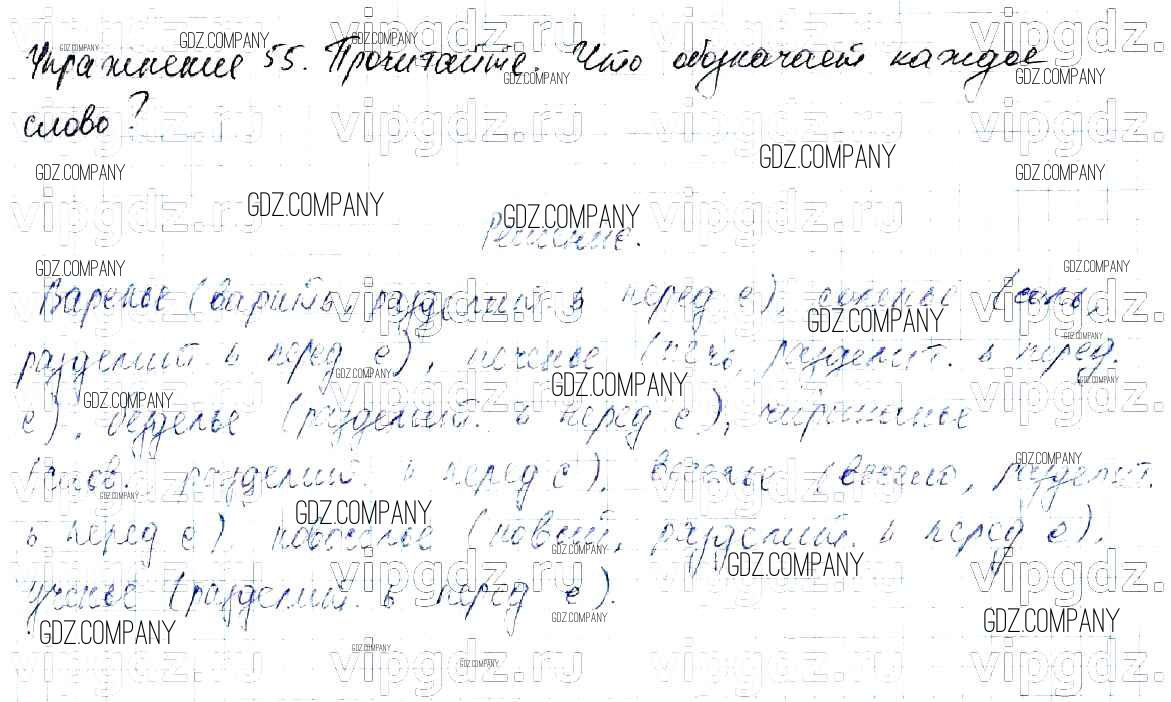 Упражнение 55. Прочитайте. Что обозначает каждое
слово?
Решение.
Варенье (варить, разделит ь перед е), соленье (соль,
разделит ь перед е), печенье (печь, разделит. ь перед.
е), безделье (разделит. ь перед е), чириканье
(слов. разделит ь перед е), веселье (весело, разделит.
ь перед е), новоселье (новый, разделит. ь перед е),
ученье (разделит. ь перед е).
vipgdz.ru
GDZ.COMPANY